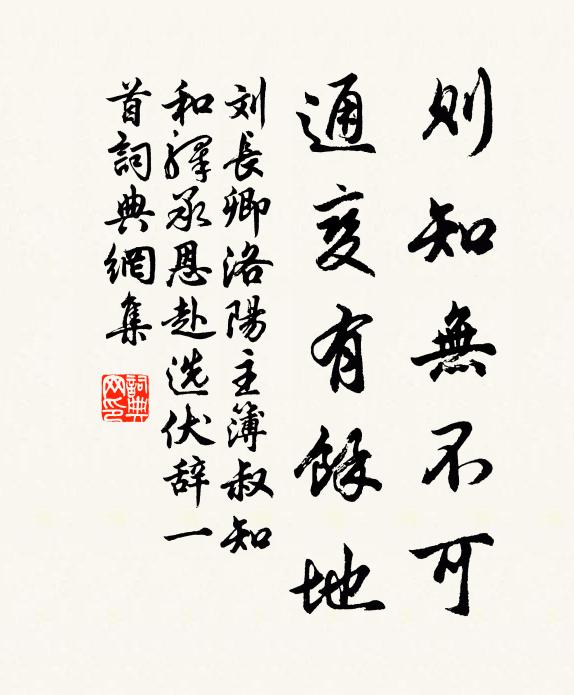 则知無不可
通变有餘地
刘長卿洛陽主簿叔知
和驛承恩赴选伏辞一
首詞典網集
詞典
网印